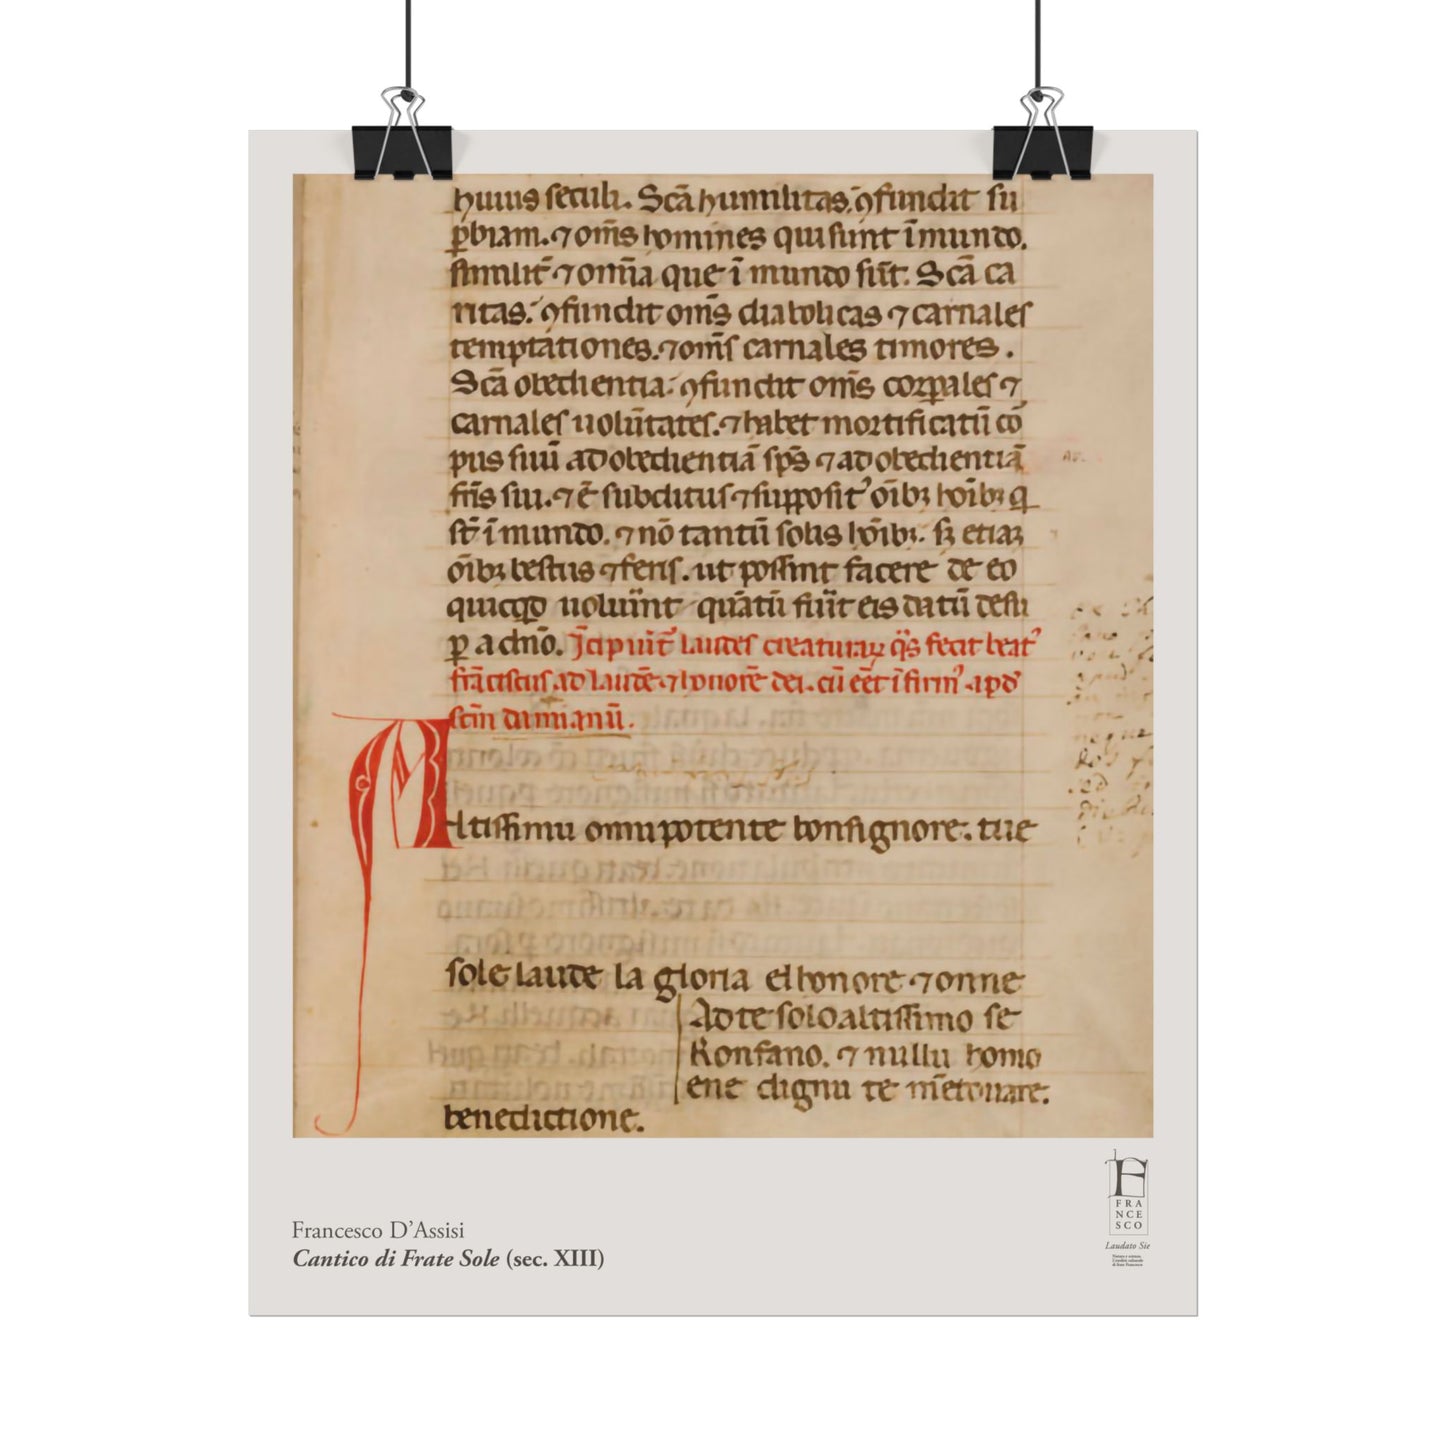 huius seculi. Scā humilitas. ꝯfundit su
ꝑbiam. ⁊ om̄s homines qui sunt ī mundo.
similit̄ ⁊ omīa que ī mundo sūt. Scā ca
ritas. ꝯfundit om̄s diabolicas ⁊ carnales
temptationes. ⁊ om̄s carnales timores.
Scā obedientia. ꝯfundit om̄s corꝑales ⁊
carnales uolūtates. ⁊ habet mortificatū co
pus suū ad obedientiā sp̄s ⁊ ad obedientiā
fr̄is sui. ⁊ ē subditus ⁊ supposit᾽ oīb; hoīb; q̄
st̄ ī mundo. ⁊ nō tantū solis hōib;. s; etiaꝫ
oīb; bestiis ⁊ feris. ut possint facere de eo
quicqd uoluīnt quātū fūit eis datū desu
ꝑ a dn̄o. Īcipiūt laudes creaturaꝝ q̄s fecit beat᾽
frāciscus ad laudē ⁊ honorē dei. cū eēt ī firm᾽ apd
scm̄ damianū.
Altissimu omnipotente bonsignore. tue
sole laude la gloria elhonore ⁊ onne
Ad te solo altissimo se
Konfano. ⁊ nullu homo
ene dignu te m̄etouare.
benedictione.
Francesco D’Assisi
Cantico di Frate Sole (sec. XIII)
F
FRA
NCE
SCO
Laudato Sie